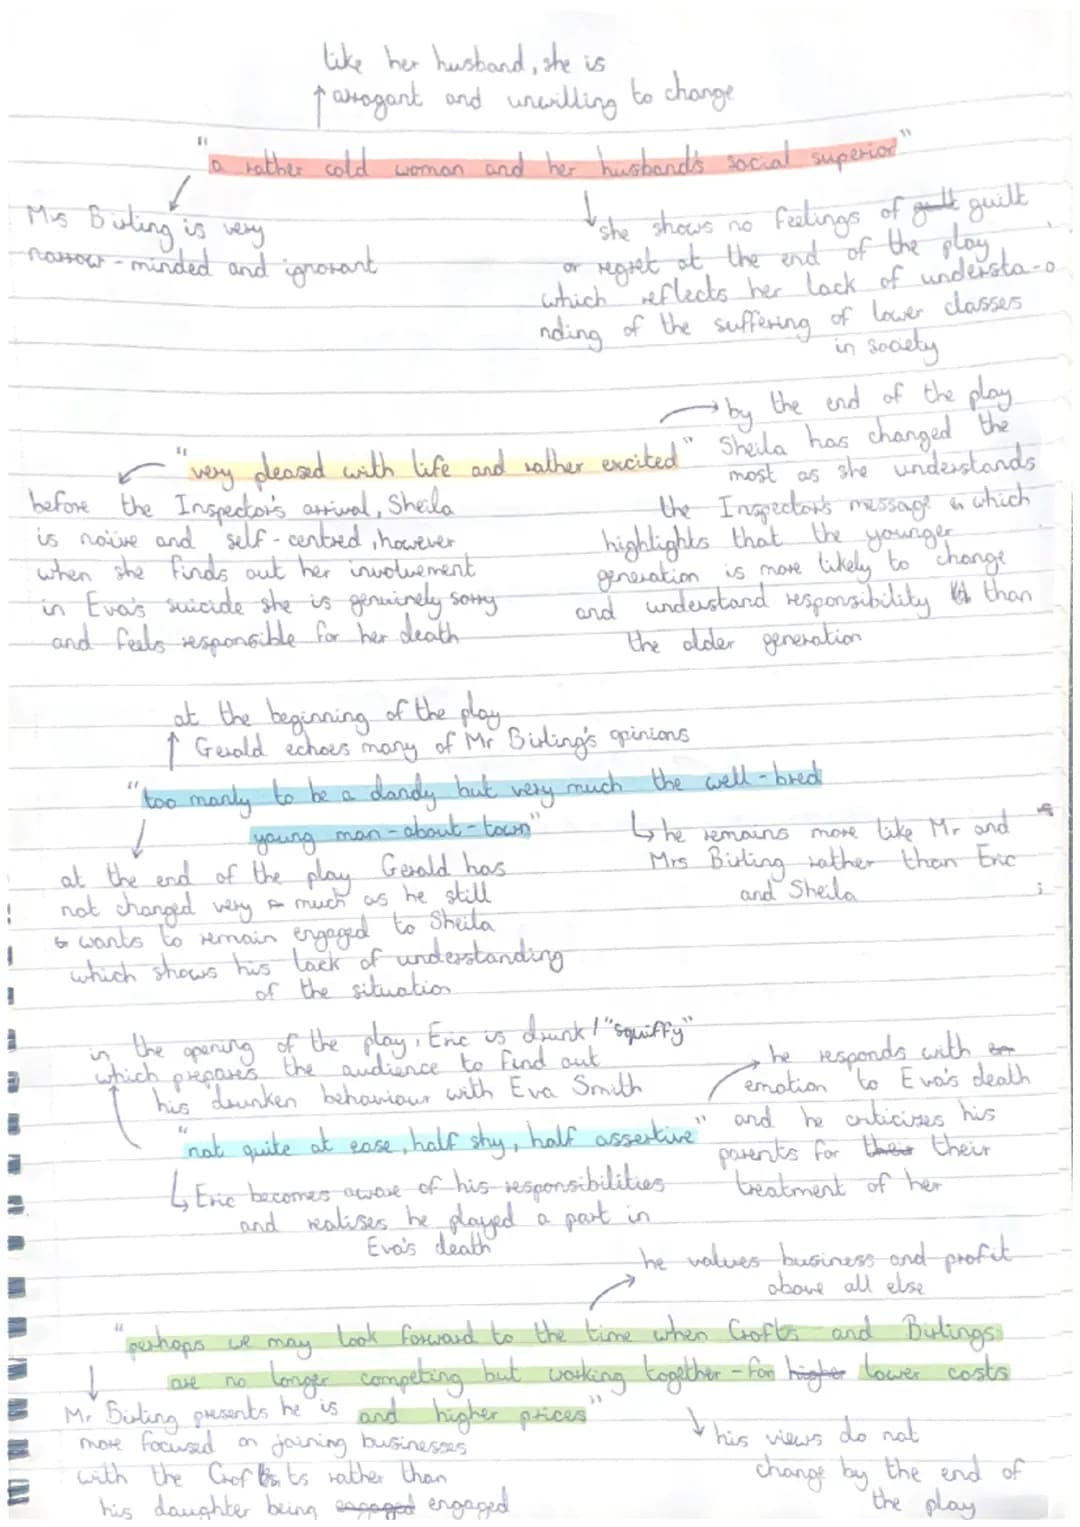 like her husband, she is
arrogant and unwilling to change
"a rather cold woman and her husband's social superior"
Mrs Birling is very
narrow-minded and ignorant
she shows no feelings of guilt guilt
or regret at the end of the play
which reflects her lack of understa-
nding of the suffering of lower classes
in society
by the end of the play
Sheila has changed the
most as she understands
the Inspector's message which
highlights that the younger
generation is more likely to change
and understand responsibility than
the older generation
"very pleased with life and rather excited"
before the Inspector's arrival, Sheila
is naive and self-centred, however
when she finds out her involvement
in Eva's suicide she is genuinely sorry
and feels responsible for her death
at the beginning of the play
Gerald echoes many of Mr Birling's opinions
"too manly to be a dandy but very much the well-bred
young man-about-town"
at the end of the play Gerald has
not changed very much as he still
wants to remain engaged to Sheila
which shows his lack of understanding
of the situation
he remains more like Mr and
Mrs Birling rather than Eric
and Sheila
in the opening of the play, Eric is drunk / "squiffy"
which prepares the audience to find out
his drunken behaviour with Eva Smith
"not quite at ease, half shy, half assertive"
he responds with
emotion to Eva's death
and he criticizes his
parents for their their
treatment of her
Eric becomes aware of his responsibilities
and realises he played a part in
Eva's death
he values business and profit
above all else
"perhaps we may look forward to the time when Crofts and Birlings
are no longer competing but working together - for higher lower costs
and higher prices"
Mr Birling presents he is
more focused on joining businesses
with the Crofts rather than
his daughter being engaged engaged
his views do not
change by the end of
the play